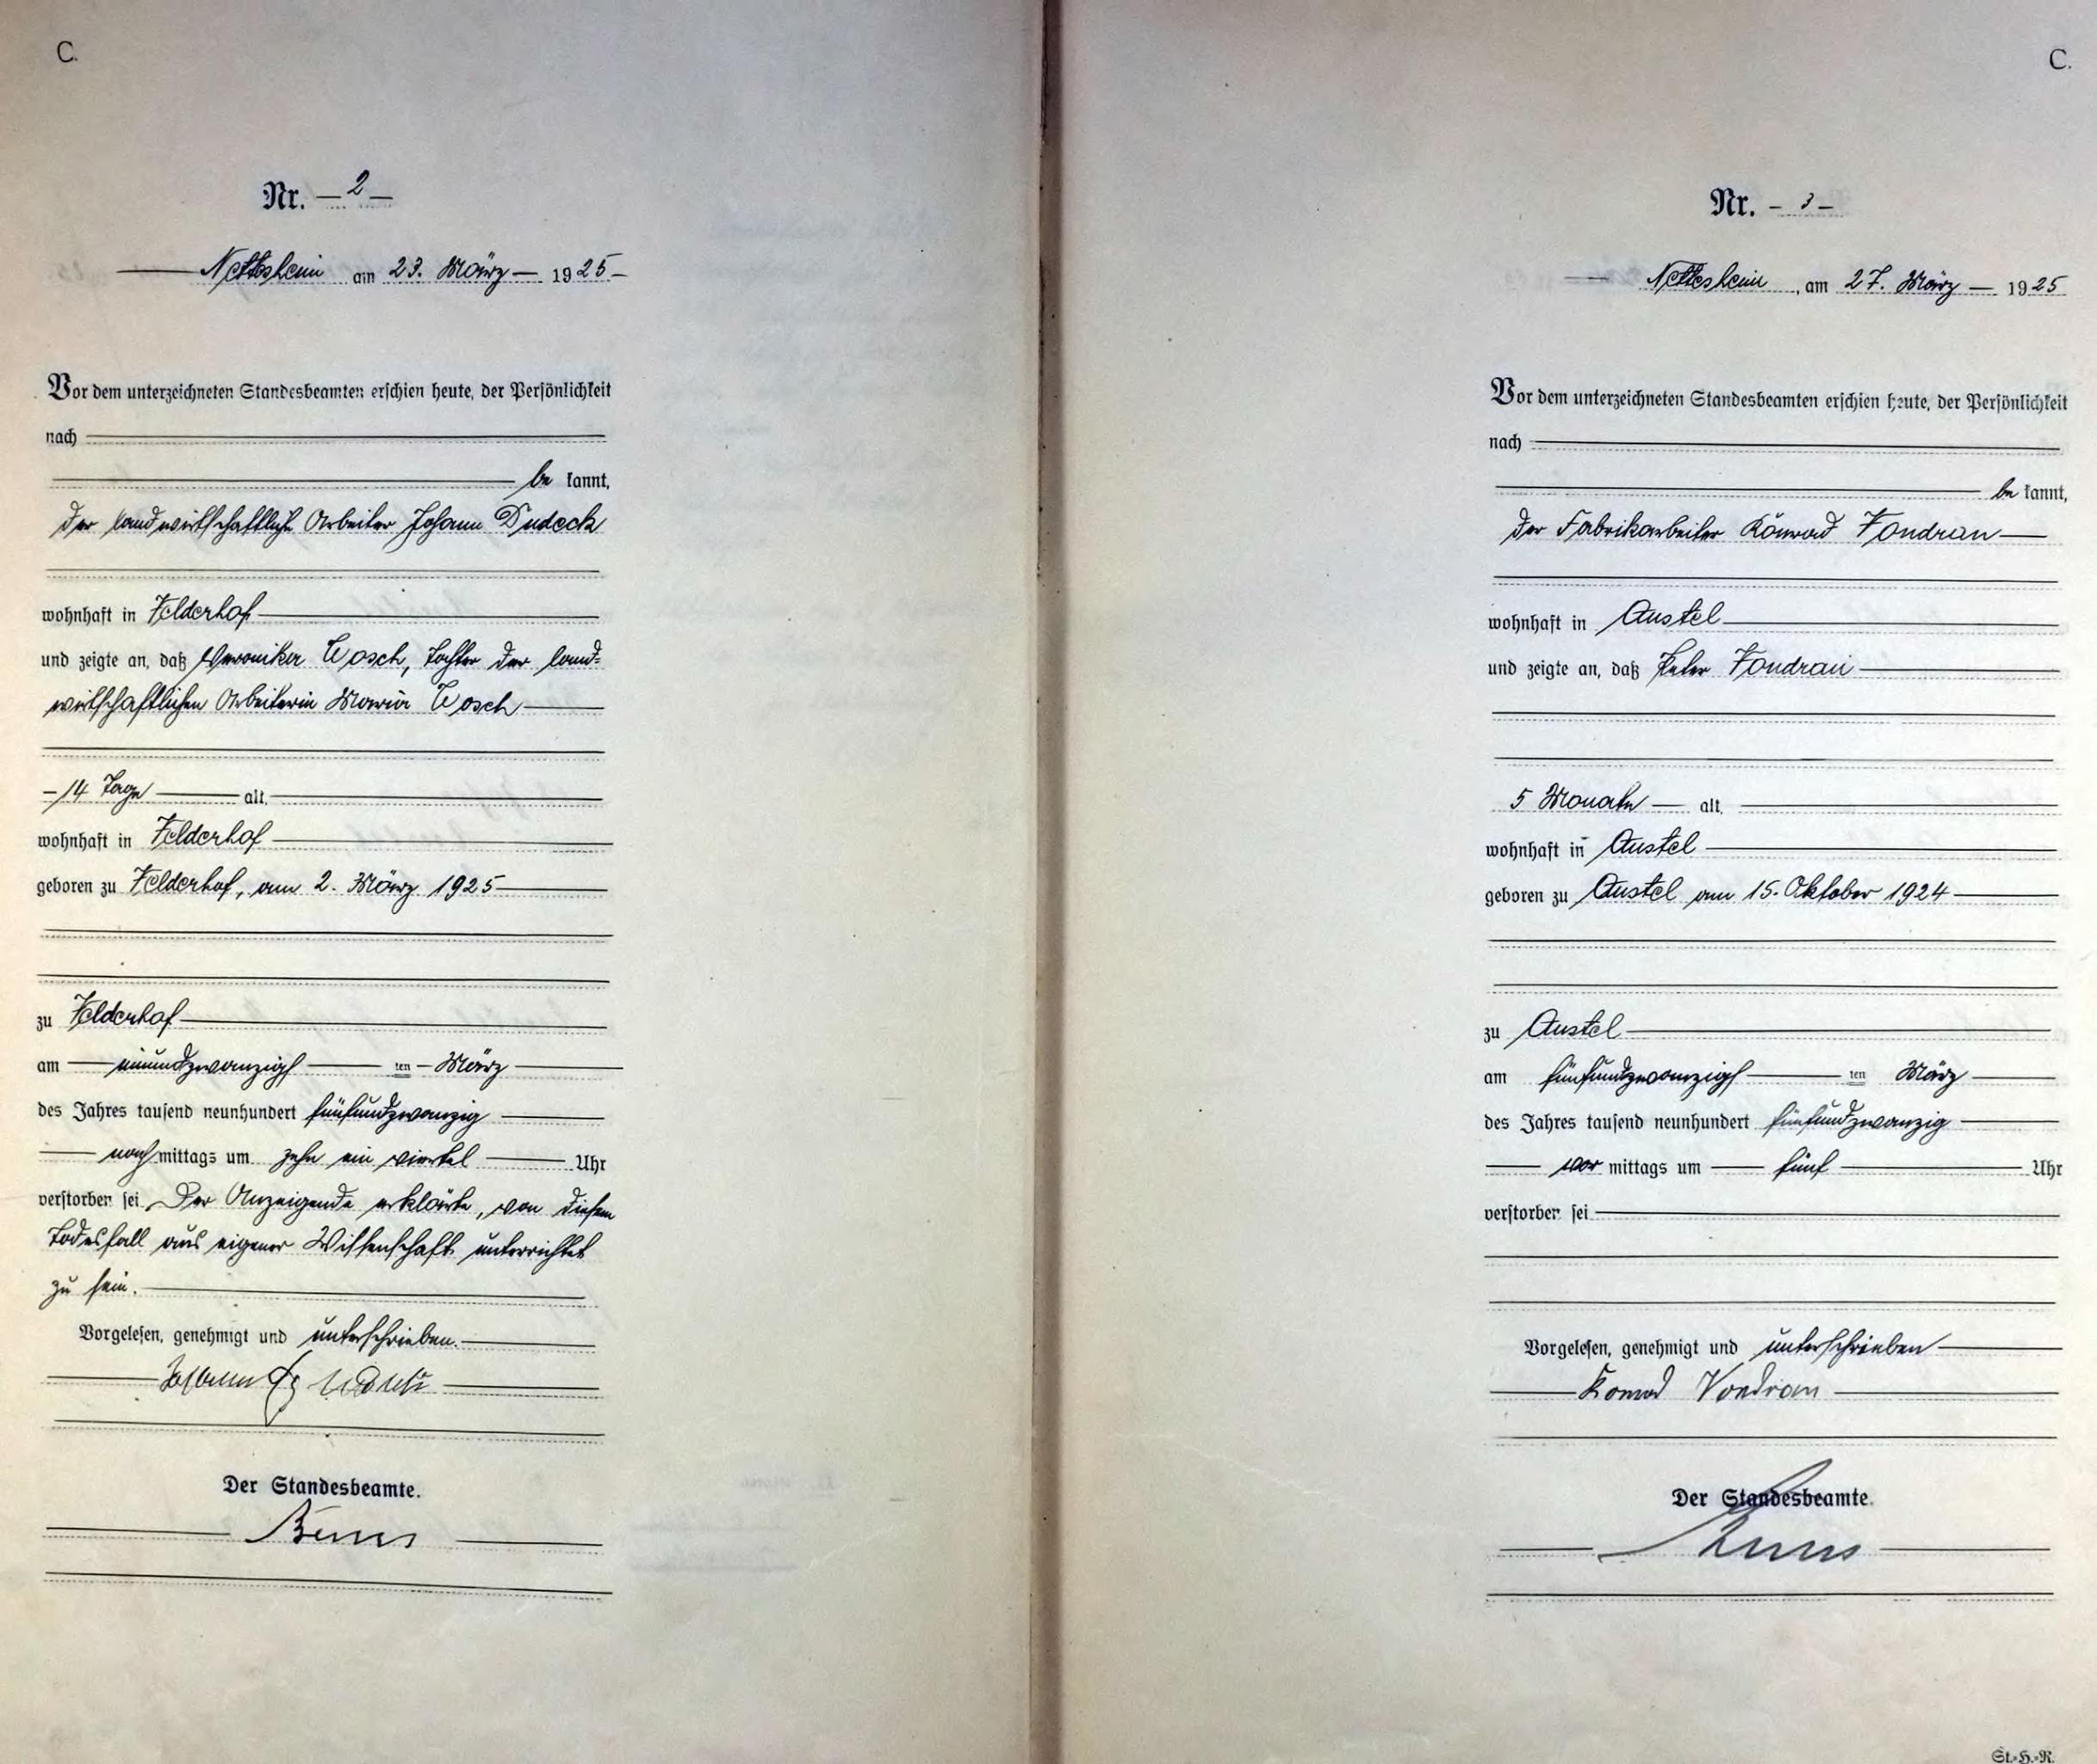 C.
Nr. — 2 —
Nettesheim am 23. März — 1925 —
Vor dem unterzeichneten Standesbeamten erschien heute, der Persönlichkeit
nach
be kannt,
der landwirtschaftliche Arbeiter Johann Dudeck
wohnhaft in Felderhof
und zeigte an, daß Veronika Cosch, Tochter der land-
wirtschaftlichen Arbeiterin Maria Cosch
— 14 Tage — alt,
wohnhaft in Felderhof
geboren zu Felderhof, am 2. März 1925
zu Felderhof
am einundzwanzigs ten März
des Jahres tausend neunhundert fünfundzwanzig
nach mittags um zehn ein viertel Uhr
verstorben sei. Der Anzeigende erklärte, von diesem
Todesfall aus eigener Wissenschaft unterrichtet
zu sein.
Vorgelesen, genehmigt und unterschrieben.
Johann
Der Standesbeamte.
C.
Nr. - 3 -
Nettesheim, am 27. März — 1925
Vor dem unterzeichneten Standesbeamten erschien heute, der Persönlichkeit
nach
be kannt,
der Fabrikarbeiter Konrad Vondran
wohnhaft in Anstel
und zeigte an, daß Peter Vondran
5 Monate — alt,
wohnhaft in Anstel
geboren zu Anstel am 15. Oktober 1924
zu Anstel
am fünfundzwanzigs ten März
des Jahres tausend neunhundert fünfundzwanzig
vor mittags um — fünf — Uhr
verstorben sei
Vorgelesen, genehmigt und unterschrieben
Konrad Vondran
Der Standesbeamte.
St.-H.-R.